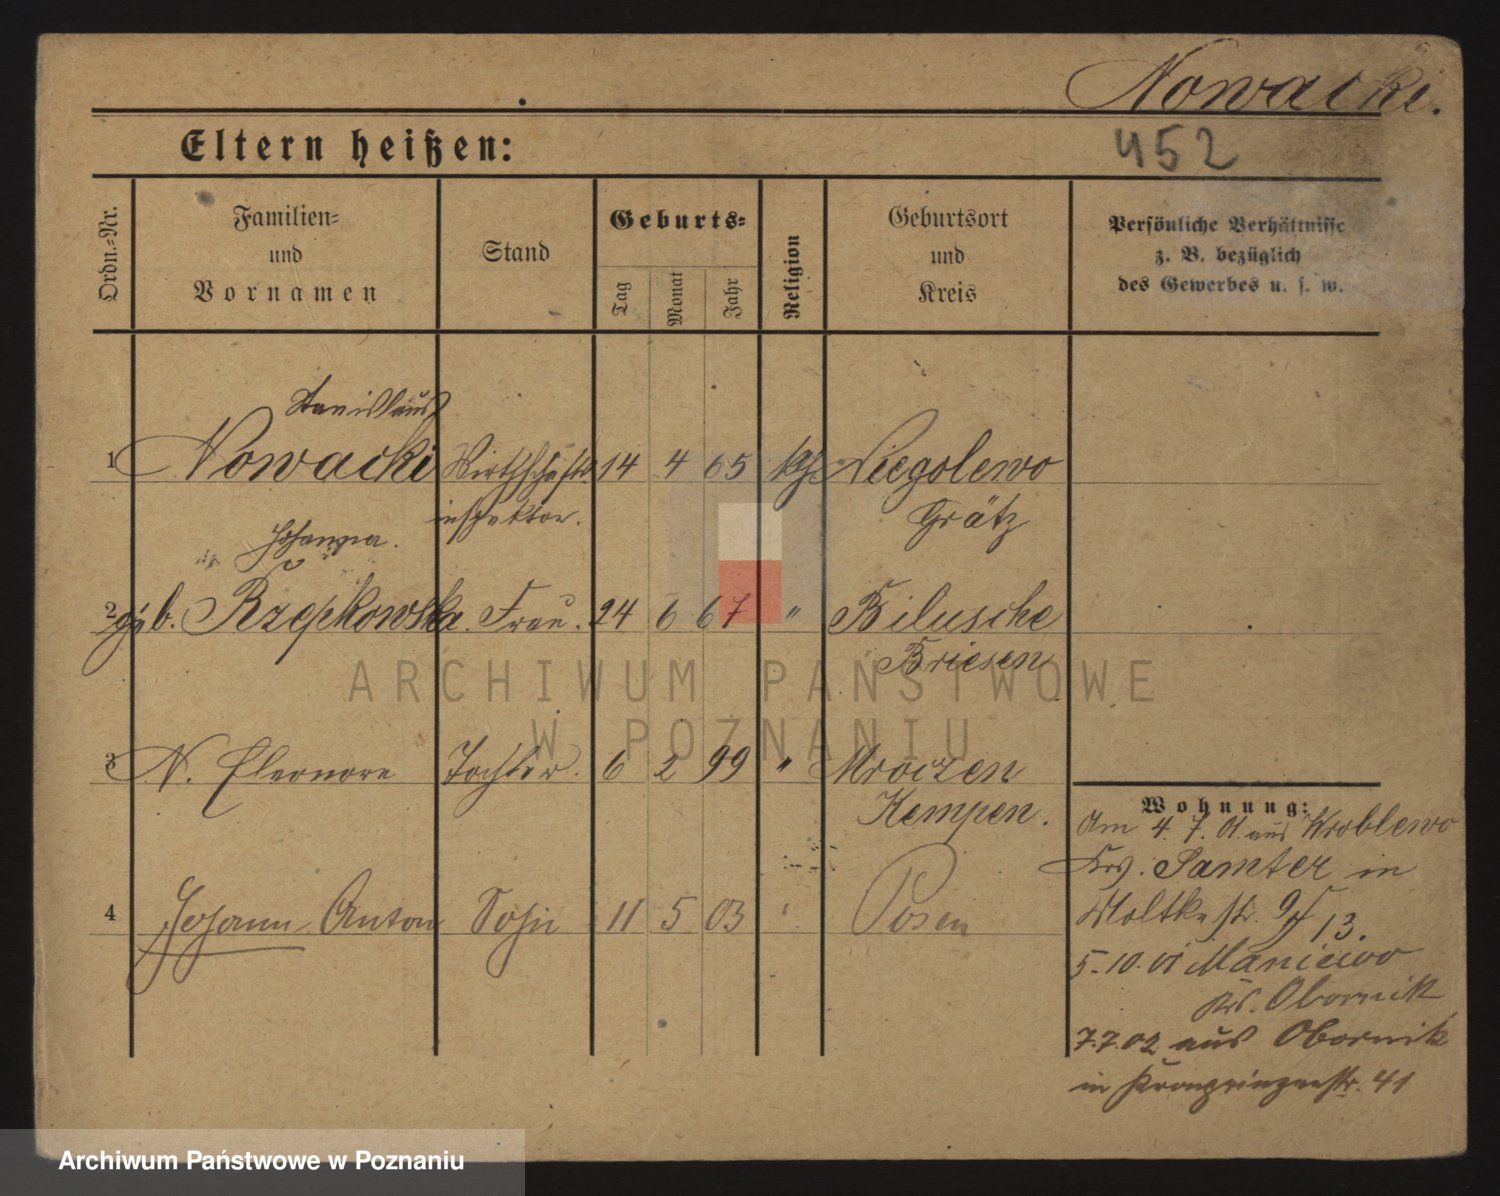 Nowacki.
452
Eltern heißen:
Ordn.-Nr.
Familien-
und
Vornamen
Stand
Geburts-
Tag
Monat
Jahr
Religion
Geburtsort
und
Kreis
Persönliche Verhältnisse
z. B. bezüglich
des Gewerbes u. s. w.
Stanislaus
1 Nowacki Wirthschafts 14 4 65 kth Niegolewo
inspektor. Grätz
Johanna.
2 geb. Rzepkowska. Frau. 24 6 67 " Bilusche
Briesen
3 N. Eleonore Tochter. 6 2 99 " Mroczen
Kempen.
4 Johann Anton Sohn 11 5 03 " Posen
Wohnung:
Am 4. 7. 01 aus Wroblewo
Krs. Samter in
Moltkestr. 13.
5.10.01 Maniewo
Krs. Obornik
7.7.02 aus Obornik
in Kronprinzenstr. 41
ARCHIWUM PAŃSTWOWE
W POZNANIU
Archiwum Państwowe w Poznaniu